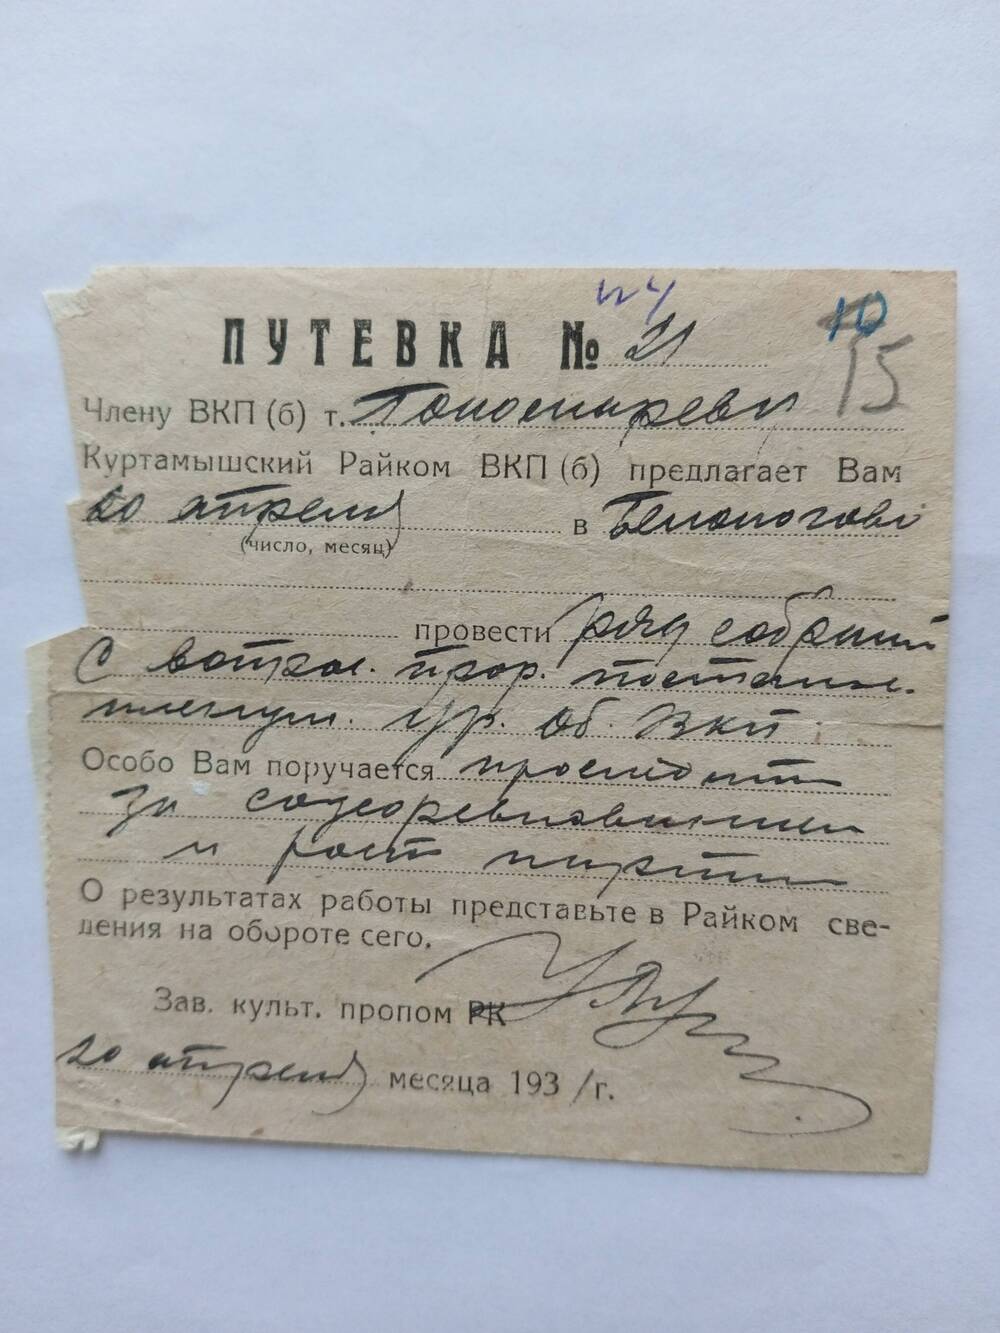 10
ПУТЕВКА № 21
15
Члену ВКП (б) т. Пономареву
Куртамышский Райком ВКП (б) предлагает Вам
20 апреля в Белоногово
(число, месяц)
провести ряд собраний
С вопрос. прор.
пленум. ур. об. ВКП
Особо Вам поручается проследить
за соцсоревнованием
и рост партии
О результатах работы представьте в Райком све-
дения на обороте сего.
Зав. культ. пропом РК
20 апреля месяца 1931 г.